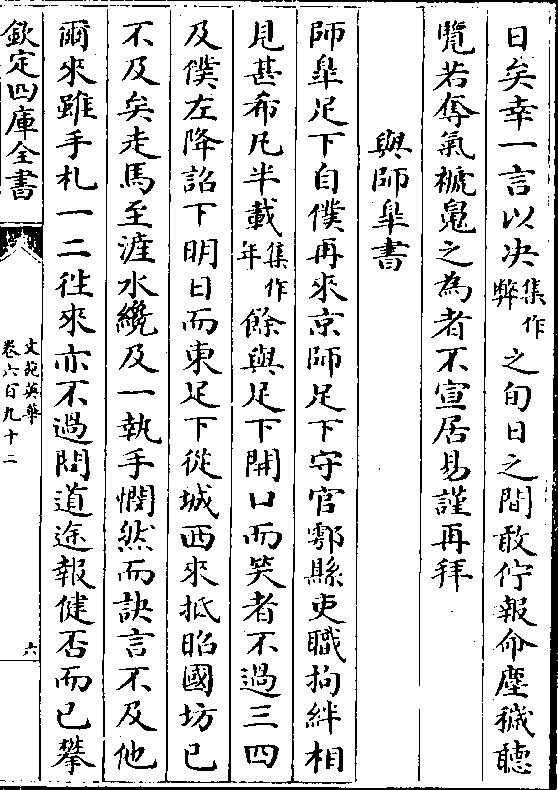 日矣幸一言以决集作弊之旬日之間敢佇報命塵穢聽
覽若奪氣褫䰟之為者不宣居易謹再拜
與師臯書
師臯足下自僕再來京師足下守官鄠縣吏職拘絆相
見甚希凡半載集作年餘與足下開口而笑者不過三四
及僕左降詔下明日而東足下從城西來抵昭國坊已
不及矣走馬至滻水纔及一執手憫然而訣言不及他
爾來雖手札一二徃來亦不過問道途報健否而已攀
欽定四庫全書
文苑英華
卷六百九十二
六